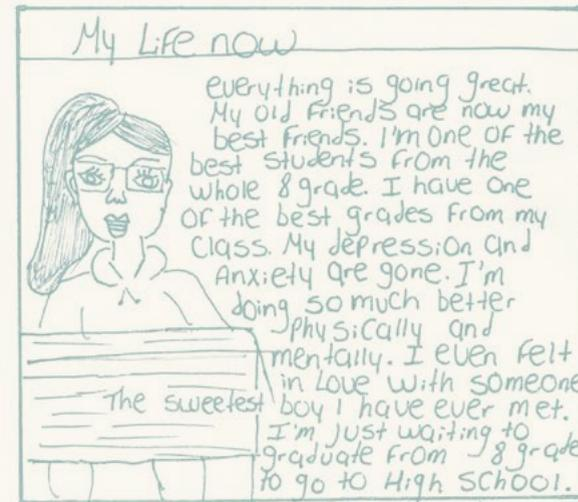 My Life now
everything is going great.
My old Friends are now my
best Friends. I'm one of the
best students from the
whole 8 grade. I have one
of the best grades from my
class. My depression and
Anxiety are gone. I'm
doing so much better
physically and
mentally. I even Felt
in Love with someone
The sweetest boy I have ever met.
I'm Just waiting to
graduate from 8 grade
to go to High School.